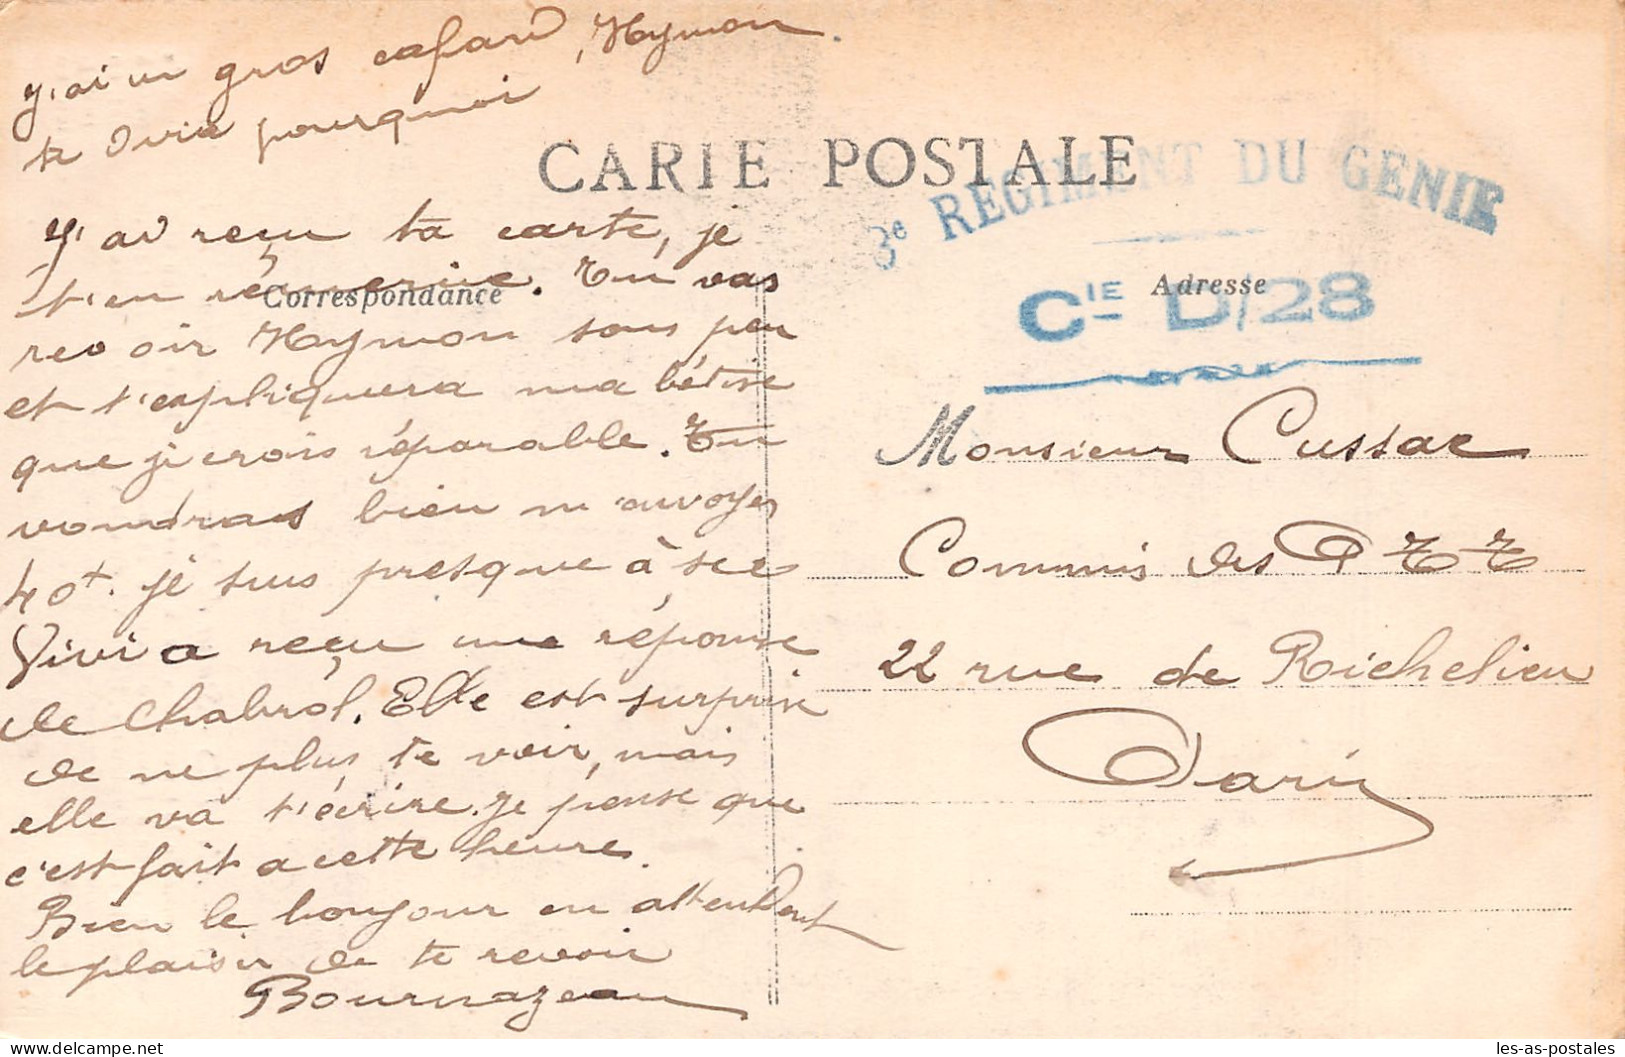 J'ai un gros cafard, Haymon
te dira pourquoi
CARTE POSTALE
3e REGIMENT DU GENIE
Cie D/28
Correspondance
Adresse
J'ai reçu ta carte, je
t'en remercie. Tu vas
revoir Haymon sous peu
et t'expliquera ma bêtise
que je crois réparable. Tu
voudras bien m'envoyer
40f. je suis presque à sec
Vivi a reçu une réponse
de Chabrol. Elle est surprise
de ne plus te voir, mais
elle va t'écrire. Je pense que
c'est fait a cette heure.
Bien le bonjour en attendant
le plaisir de te revoir
Bournazeau
Monsieur Cussac
Commis des P T T
22 rue de Richelieu
Paris
les-as-postales